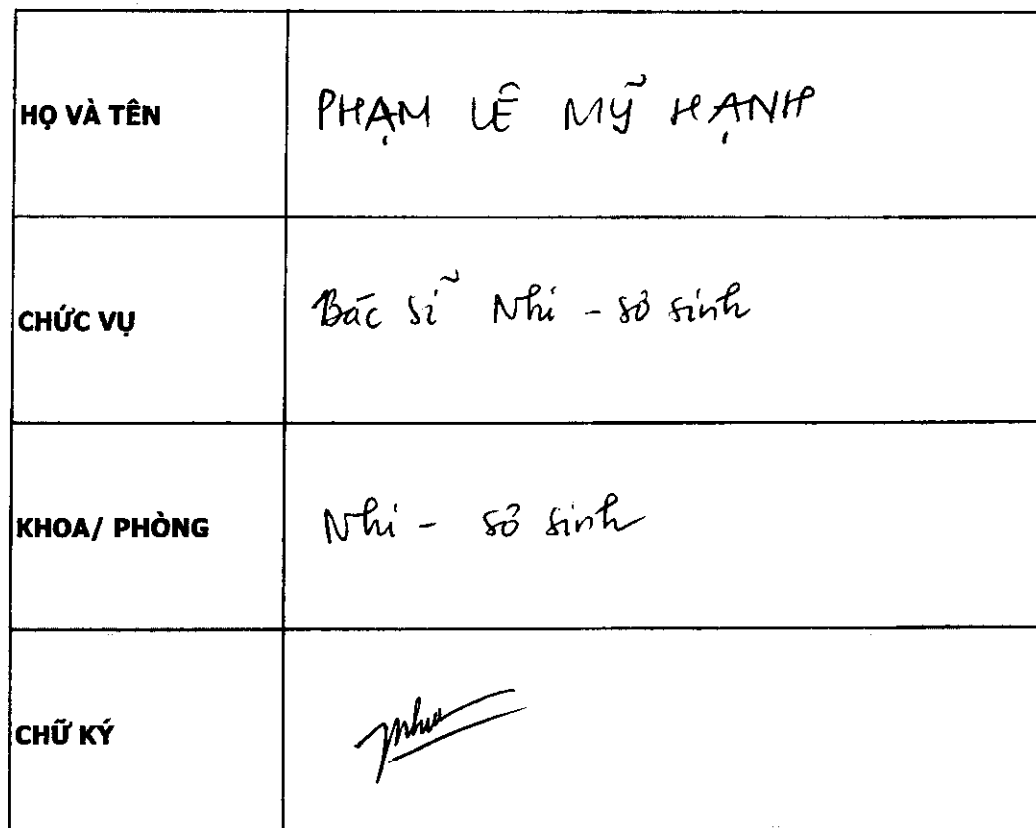 HỌ VÀ TÊN PHẠM LÊ MỸ HẠNH
CHỨC VỤ Bác sĩ Nhi - sơ sinh
KHOA/ PHÒNG Nhi - sơ sinh
CHỮ KÝ